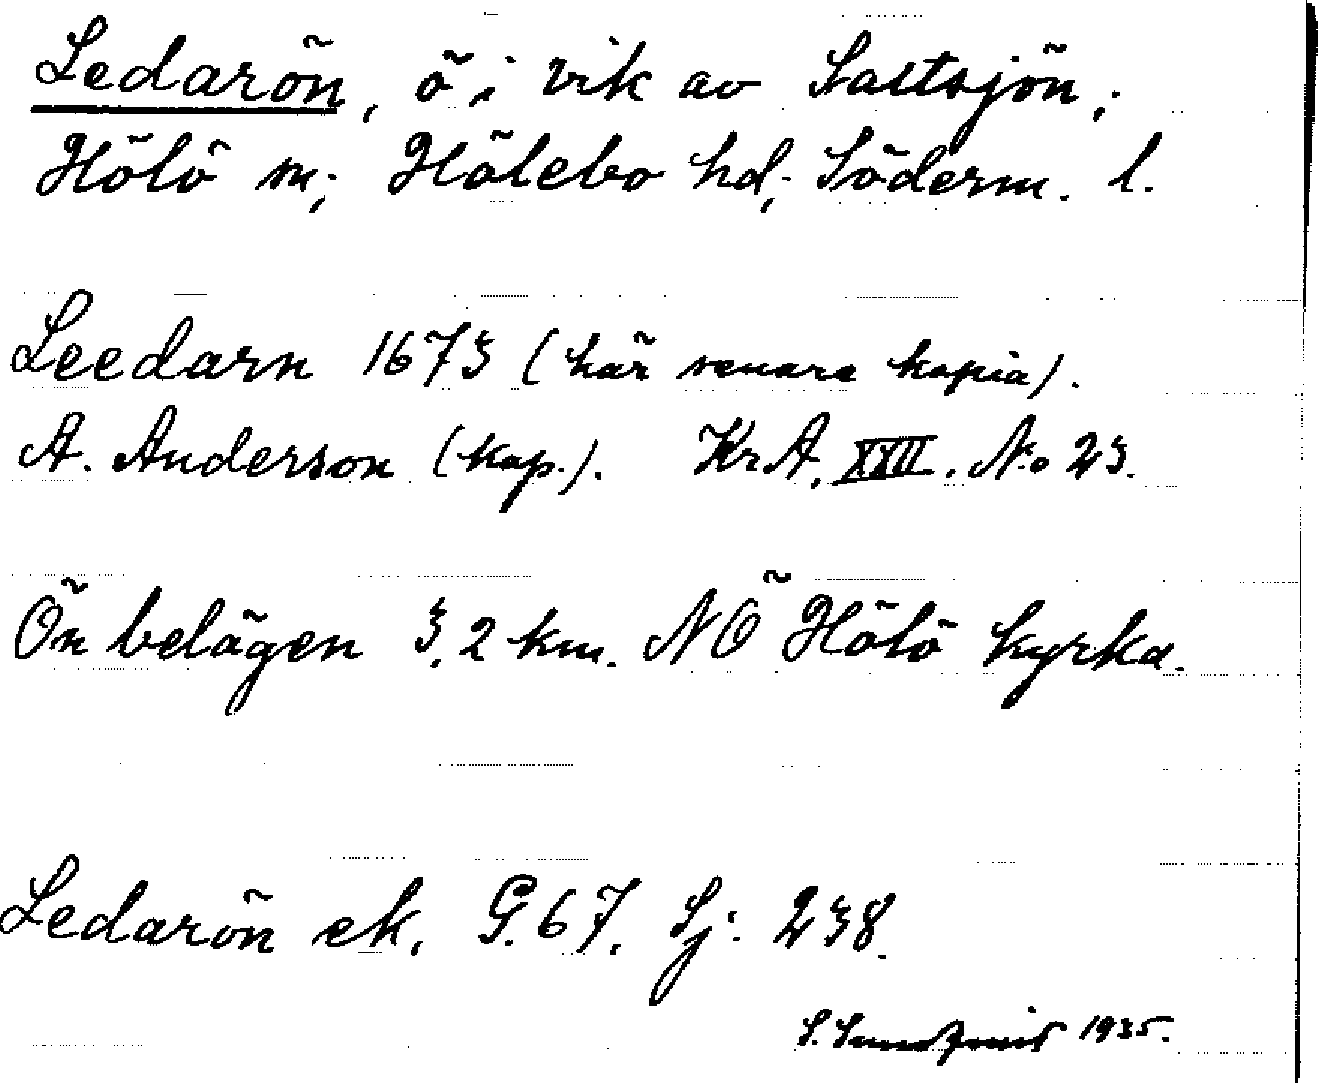 Ledarön, ö i vik av Saltsjön,
Hölö sn; Hölebo hd; Söderm. l.
Leedarn 1673 (här senare kopia).
A. Anderson (kop.). KrA, XXII. No 23.
Ön belägen 3,2 km. NÖ Hölö kyrka.
Ledarön ek. G. 67. Sj: 238.
S. Sundqvist 1935.